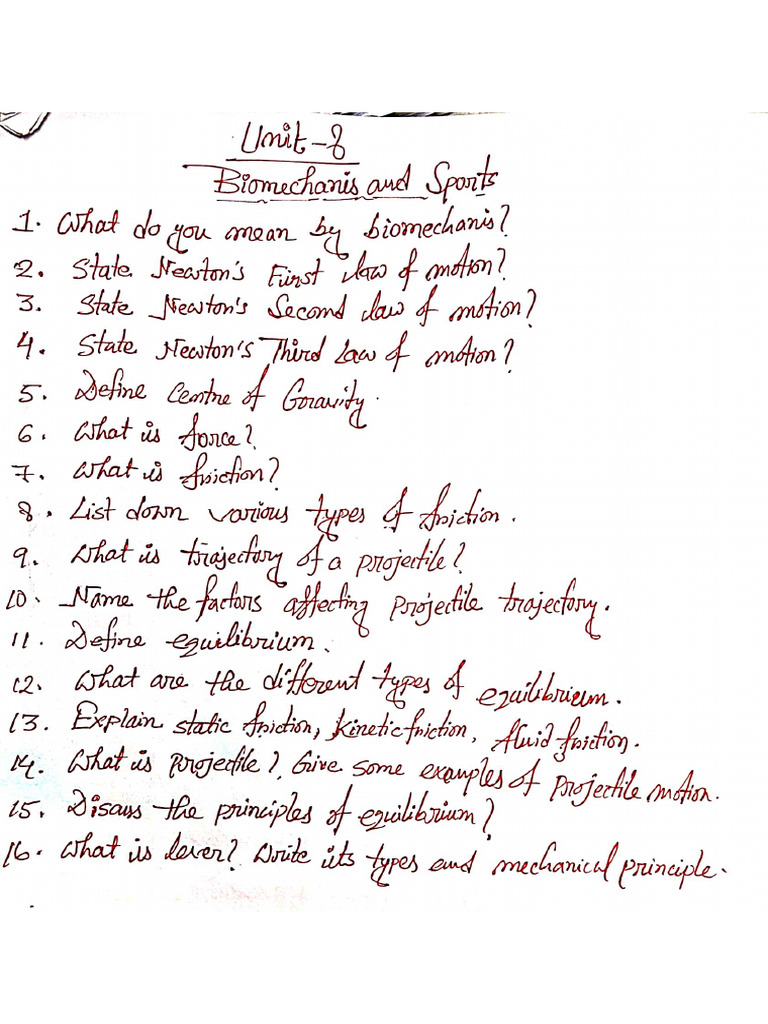 Unit-8
Biomechanis and Sports
1. What do you mean by biomechanis?
2. State Newton's First law of motion?
3. State Newton's Second law of motion?
4. State Newton's Third Law of motion?
5. Define Centre of Gravity.
6. What is force?
7. What is friction?
8. List down various types of friction.
9. What is trajectory of a projectile?
10. Name the factors affecting projectile trajectory.
11. Define equilibrium.
12. What are the different types of equilibrium.
13. Explain static friction, kinetic friction, fluid friction.
14. What is projectile? Give some examples of projectile motion.
15. Disauss the principles of equilibrium?
16. What is lever? Write its types and mechanical principle.